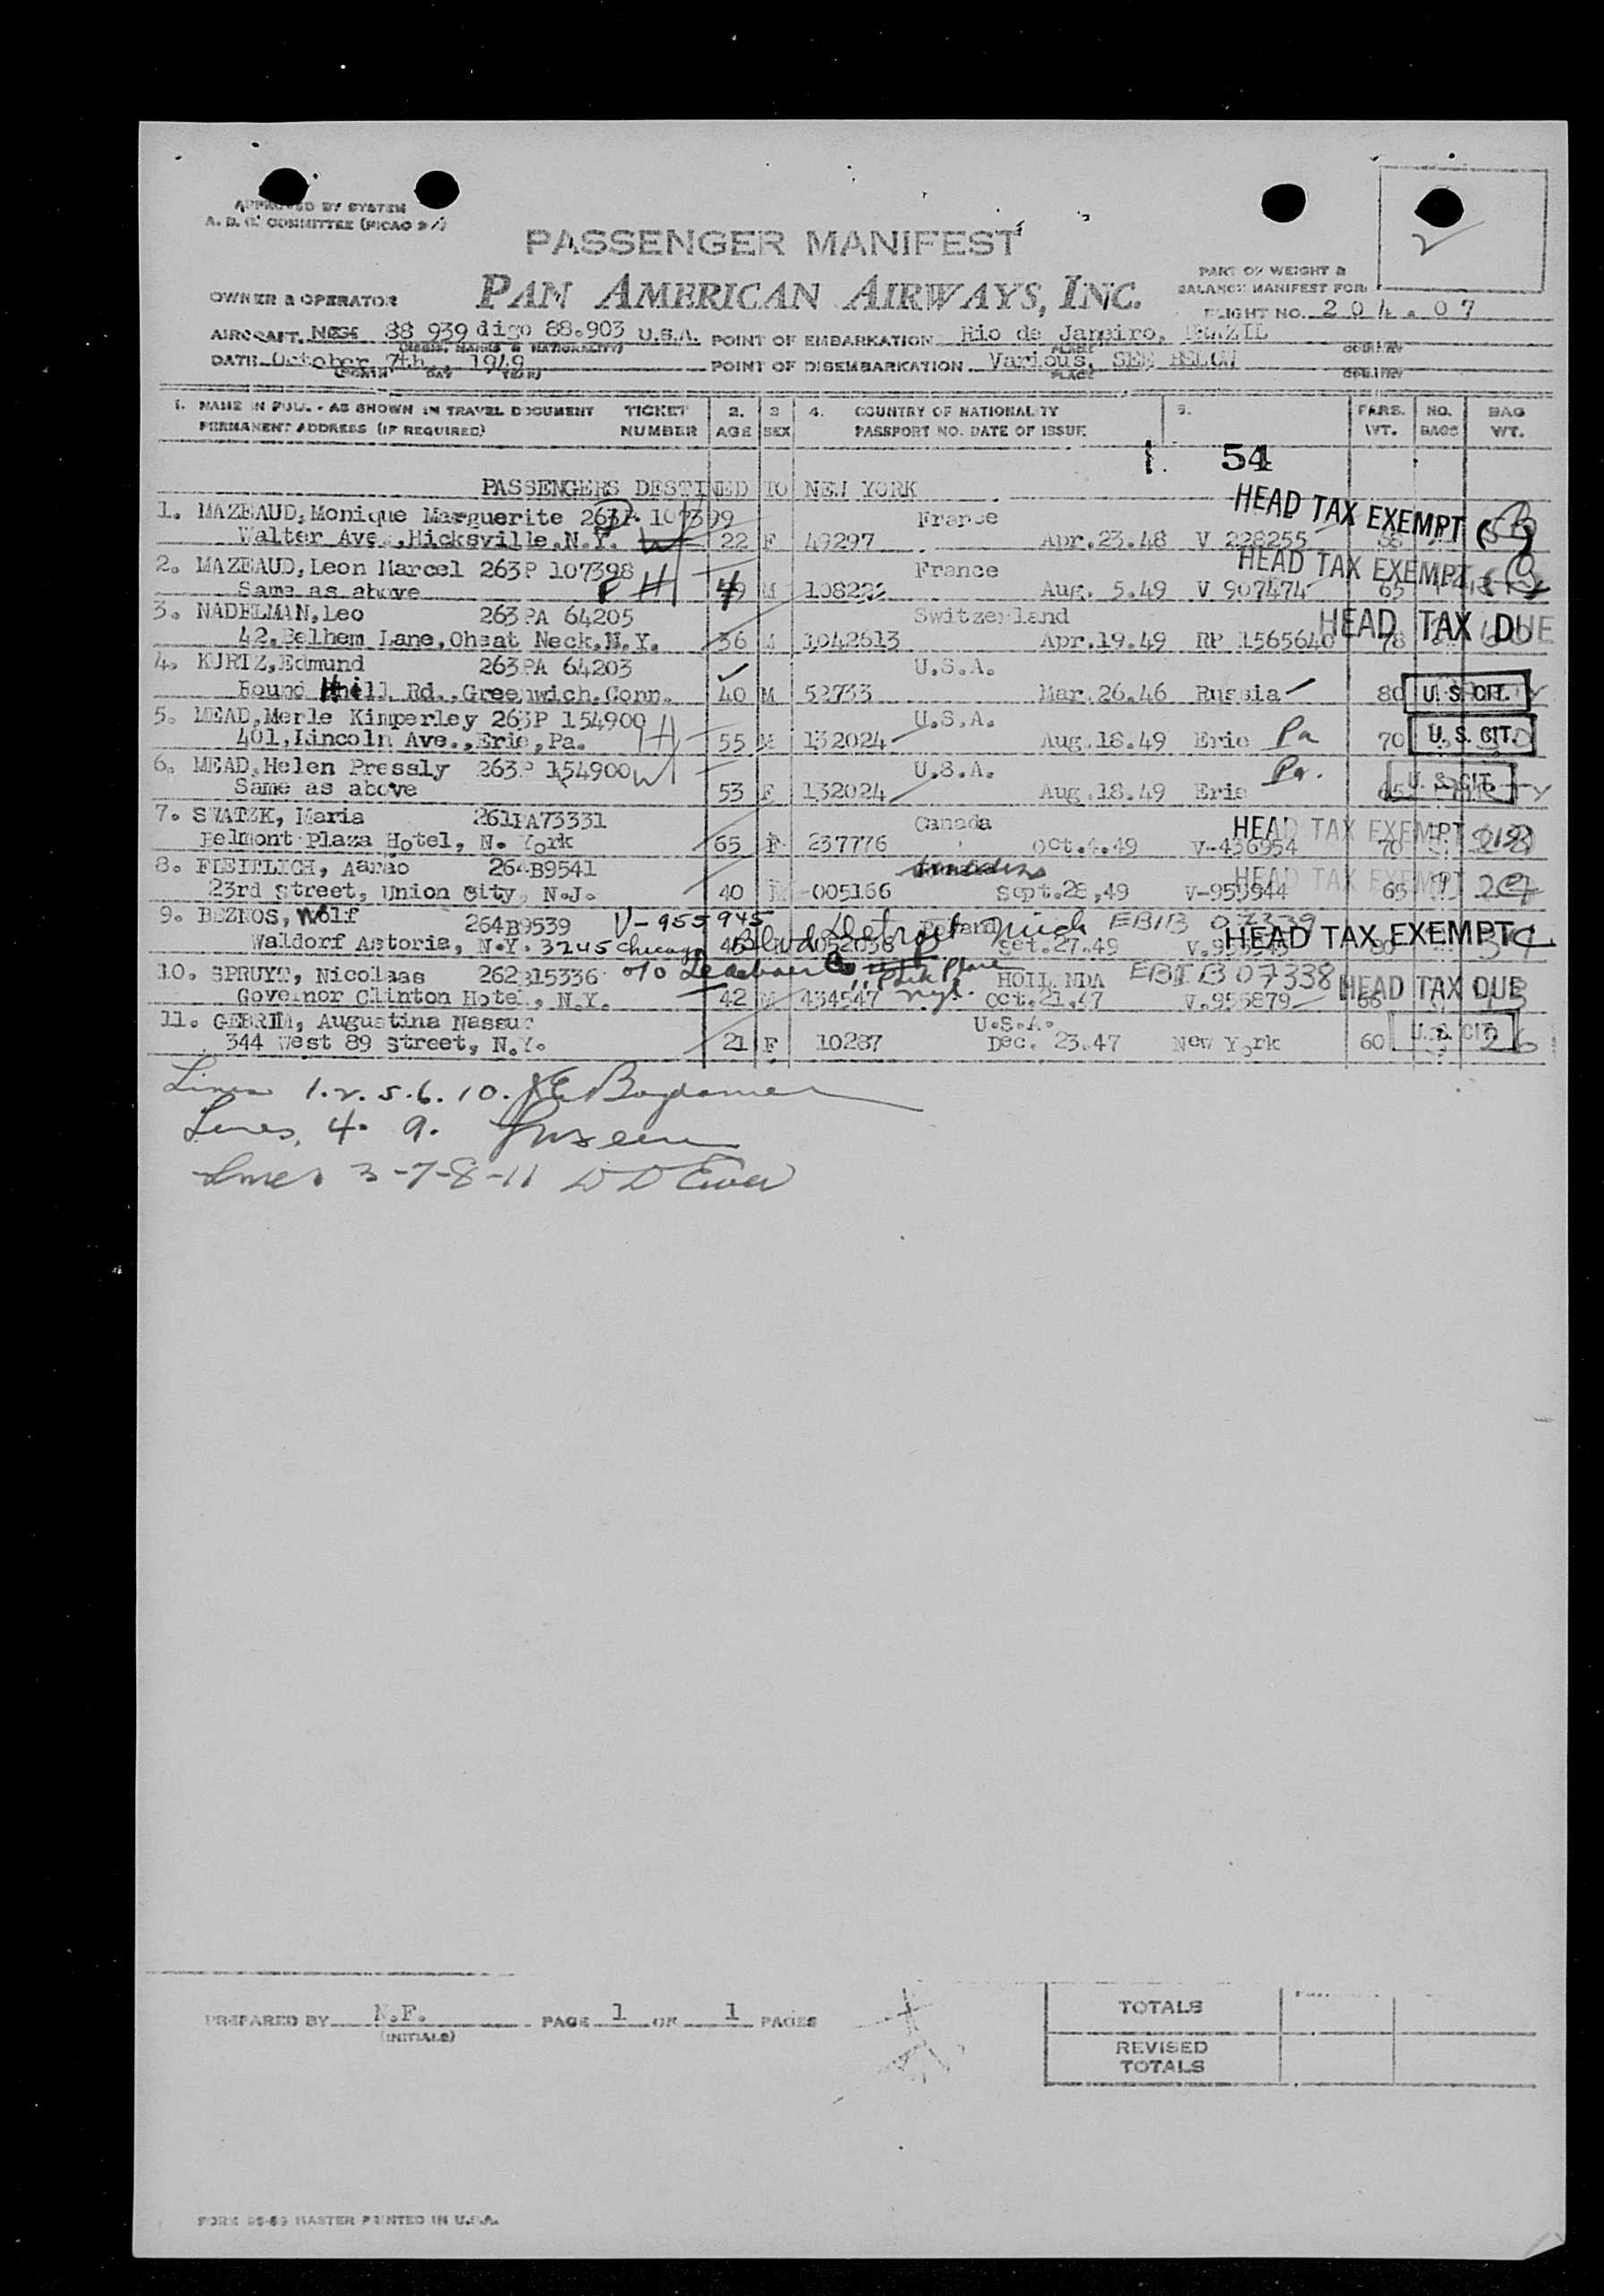 APPROVED BY SYSTEM
A. D. C. COMMITTEE
PASSENGER MANIFEST
PAN AMERICAN AIRWAYS, INC.
PART OF WEIGHT &
BALANCE MANIFEST FOR
OWNER & OPERATOR
FLIGHT NO. 204.07
AIRCRAFT 88 939 digo 88.903 U.S.A. POINT OF EMBARKATION Rio de Janeiro, BRAZIL
(MARKS & NATIONALITY) PLACE COUNTRY
DATE October 7th 1949 POINT OF DISEMBARKATION Various, SEE BELOW
(MONTH DAY YEAR) PLACE COUNTRY
1. NAME IN FULL - AS SHOWN IN TRAVEL DOCUMENT TICKET 2. 3 4. COUNTRY OF NATIONALITY 5. PARS. NO. BAG
PERMANENT ADDRESS (IF REQUIRED) NUMBER AGE SEX PASSPORT NO. DATE OF ISSUE WT. BAGS WT.
1 54
PASSENGERS DESTINED TO NEW YORK
1. MAZEAUD, Monique Marguerite France HEAD TAX EXEMPT
Walter Ave., Hicksville, N.Y. 22 F 49297 Apr.23.48 V 228255
2. MAZEAUD, Leon Marcel 263P 107398 France HEAD TAX EXEMPT
Same as above M Aug. 5.49 V 907474 65
3. NADELMAN, Leo 263PA 64205 Switzerland HEAD TAX DUE
42, Lane, Neck, N.Y. 36 M 1042613 Apr.19.49 RP 1565640 78
4. KURTZ, Edmund 263PA 64203 U.S.A.
Round Hill Rd., Greenwich, Conn. 40 M 52733 Mar.26.46 Russia 80 U. S. CIT.
5. MEAD, Merle Kimperley 263P 154900 H U.S.A.
401, Lincoln Ave., Erie, Pa. 55 M 132024 Aug.18.49 Erie Pa 70 U. S. CIT.
6. MEAD, Helen Pressly 263P 154900 W U.S.A. Pa.
Same as above 53 F 132024 Aug.18.49 Erie 65 U. S. CIT.
7. SWATEK, Maria 261PA73331 Canada HEAD TAX EXEMPT
Belmont Plaza Hotel, N. York 65 F 237776 Oct.4.49 V-436954 70
8. Aarão 264B9541 HEAD TAX EXEMPT
23rd Street, Union City, N.J. 40 005166 Sept.28,49 V-955944 65
9. BEZNOS, Wolf 264B9539 V-955945 Poland Detroit Mich EBIB 07339
Waldorf Astoria, N.Y. 3245 Chicago Blvd Set.27.49 HEAD TAX EXEMPT
10. SPRUYT, Nicolaas 262B15336 c/o Park Place HOLLANDA EBIB 07338 HEAD TAX DUE
Governor Clinton Hotel, N.Y. 42 M 434547 nyc. Oct.21.47 V.955879 66
11. GEBRIM, Augustina Nassur U.S.A.
344 West 89 Street, N.Y. 21 F 10287 Dec. 23.47 New York 60 U. S. CIT. 26
Lines 1.2.5.6.10.
Lines, 4. 9.
Lines 3-7-8-11
PREPARED BY N.F. PAGE 1 OF 1 PAGES
(INITIALS)
TOTALS
REVISED
TOTALS
MASTER PRINTED IN U.S.A.